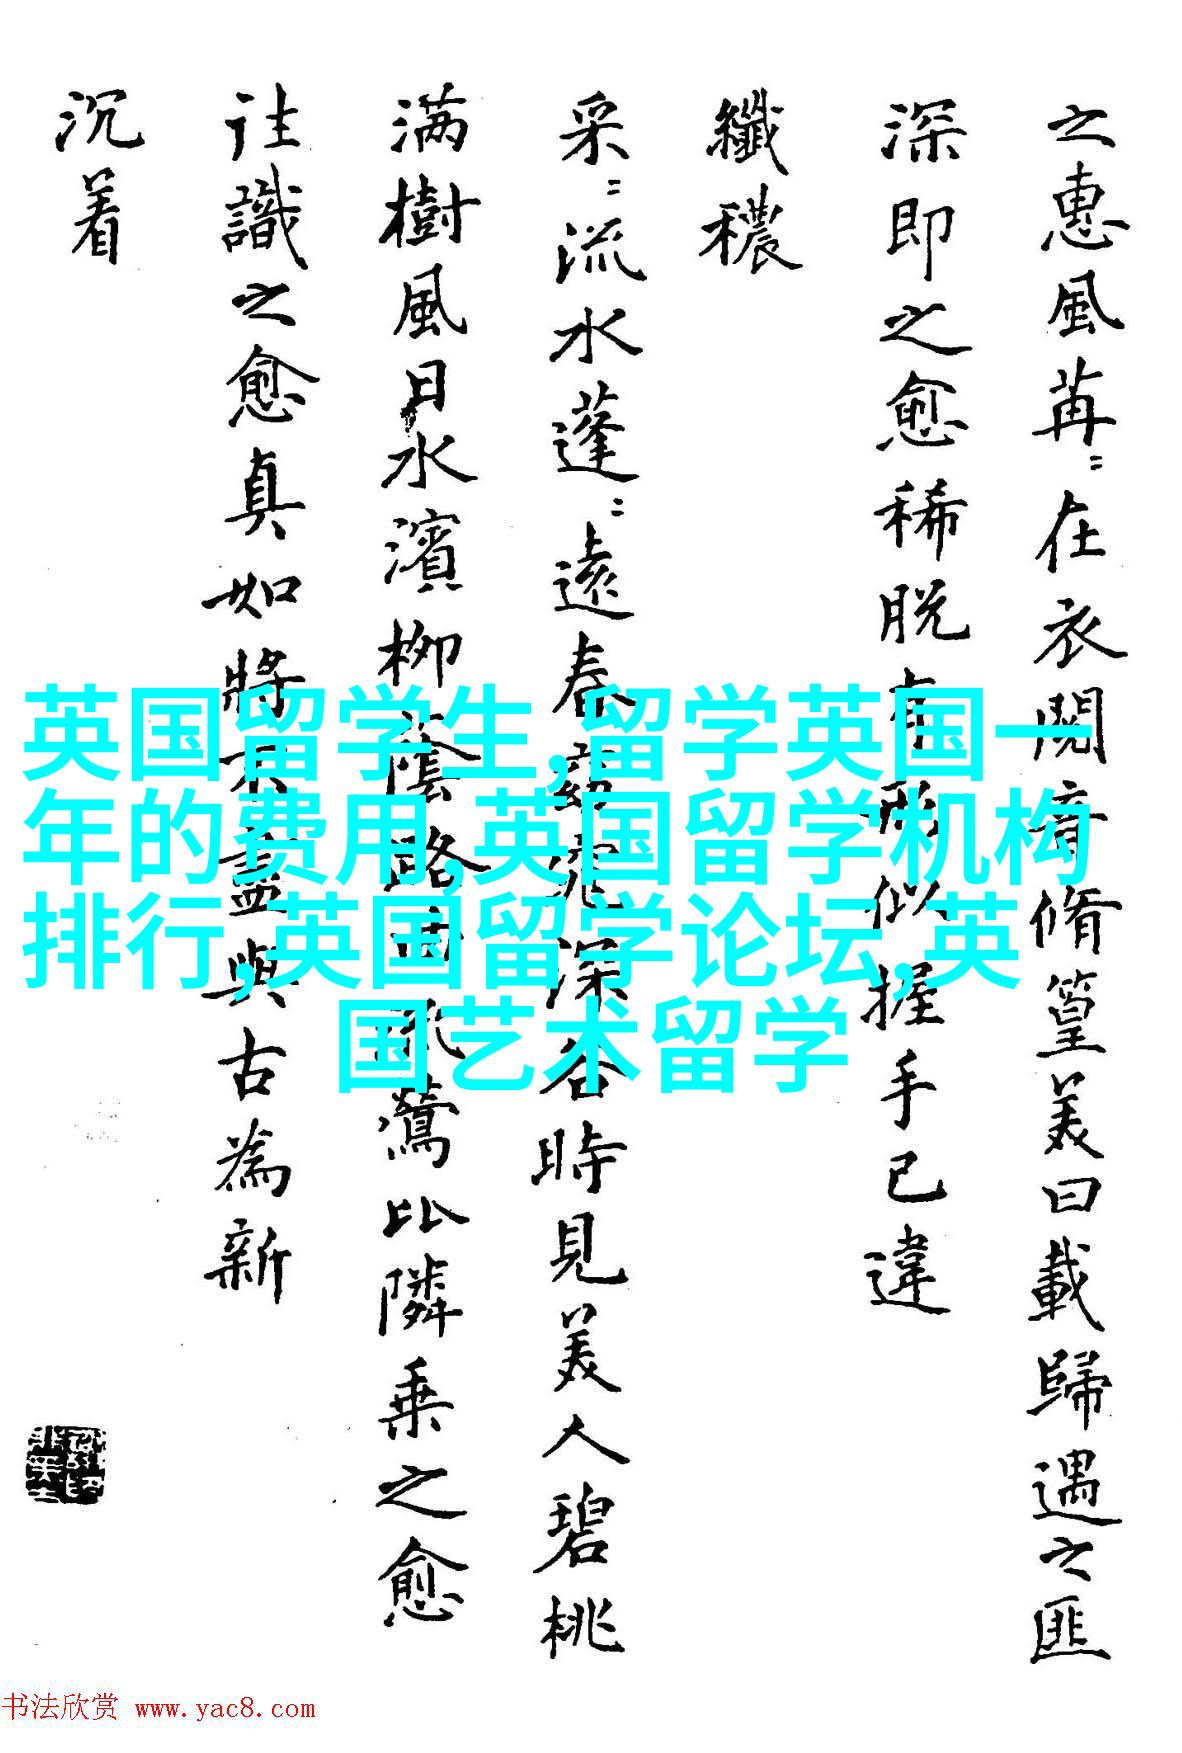 之惠風苒=在衣閱音脩篁美曰載歸遇之匪
深即之愈稀脱有形似握手已違
纖穠
采=流水蓬=遠春窈窕深谷時見美人碧桃
满樹風日水濱柳蔭路曲流鶯比隣乗之愈
往識之愈真如將不盡與古為新
沉着
英国留学生,留学英国一
年的费用,英国留学机构
排行,英国留学论坛,英
国艺术留学
书法欣赏 www.yac8.com